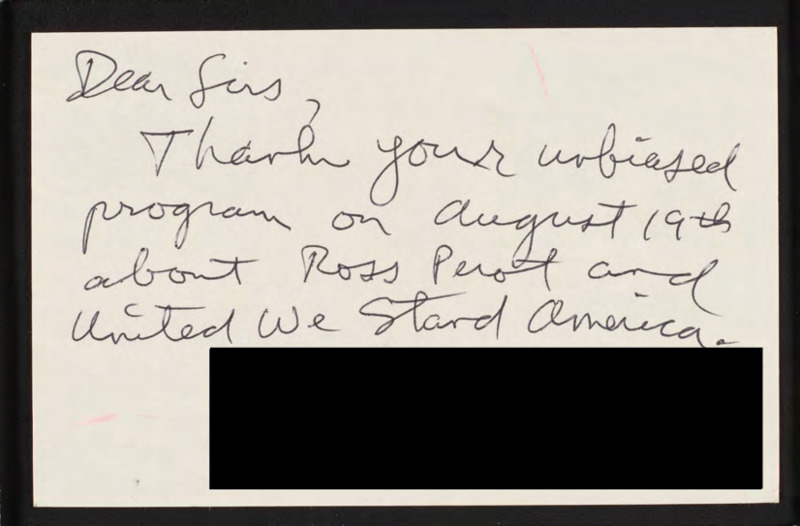 Dear Sirs,
Thank your unbiased
program on August 19th
about Ross Perot and
United We Stand America.